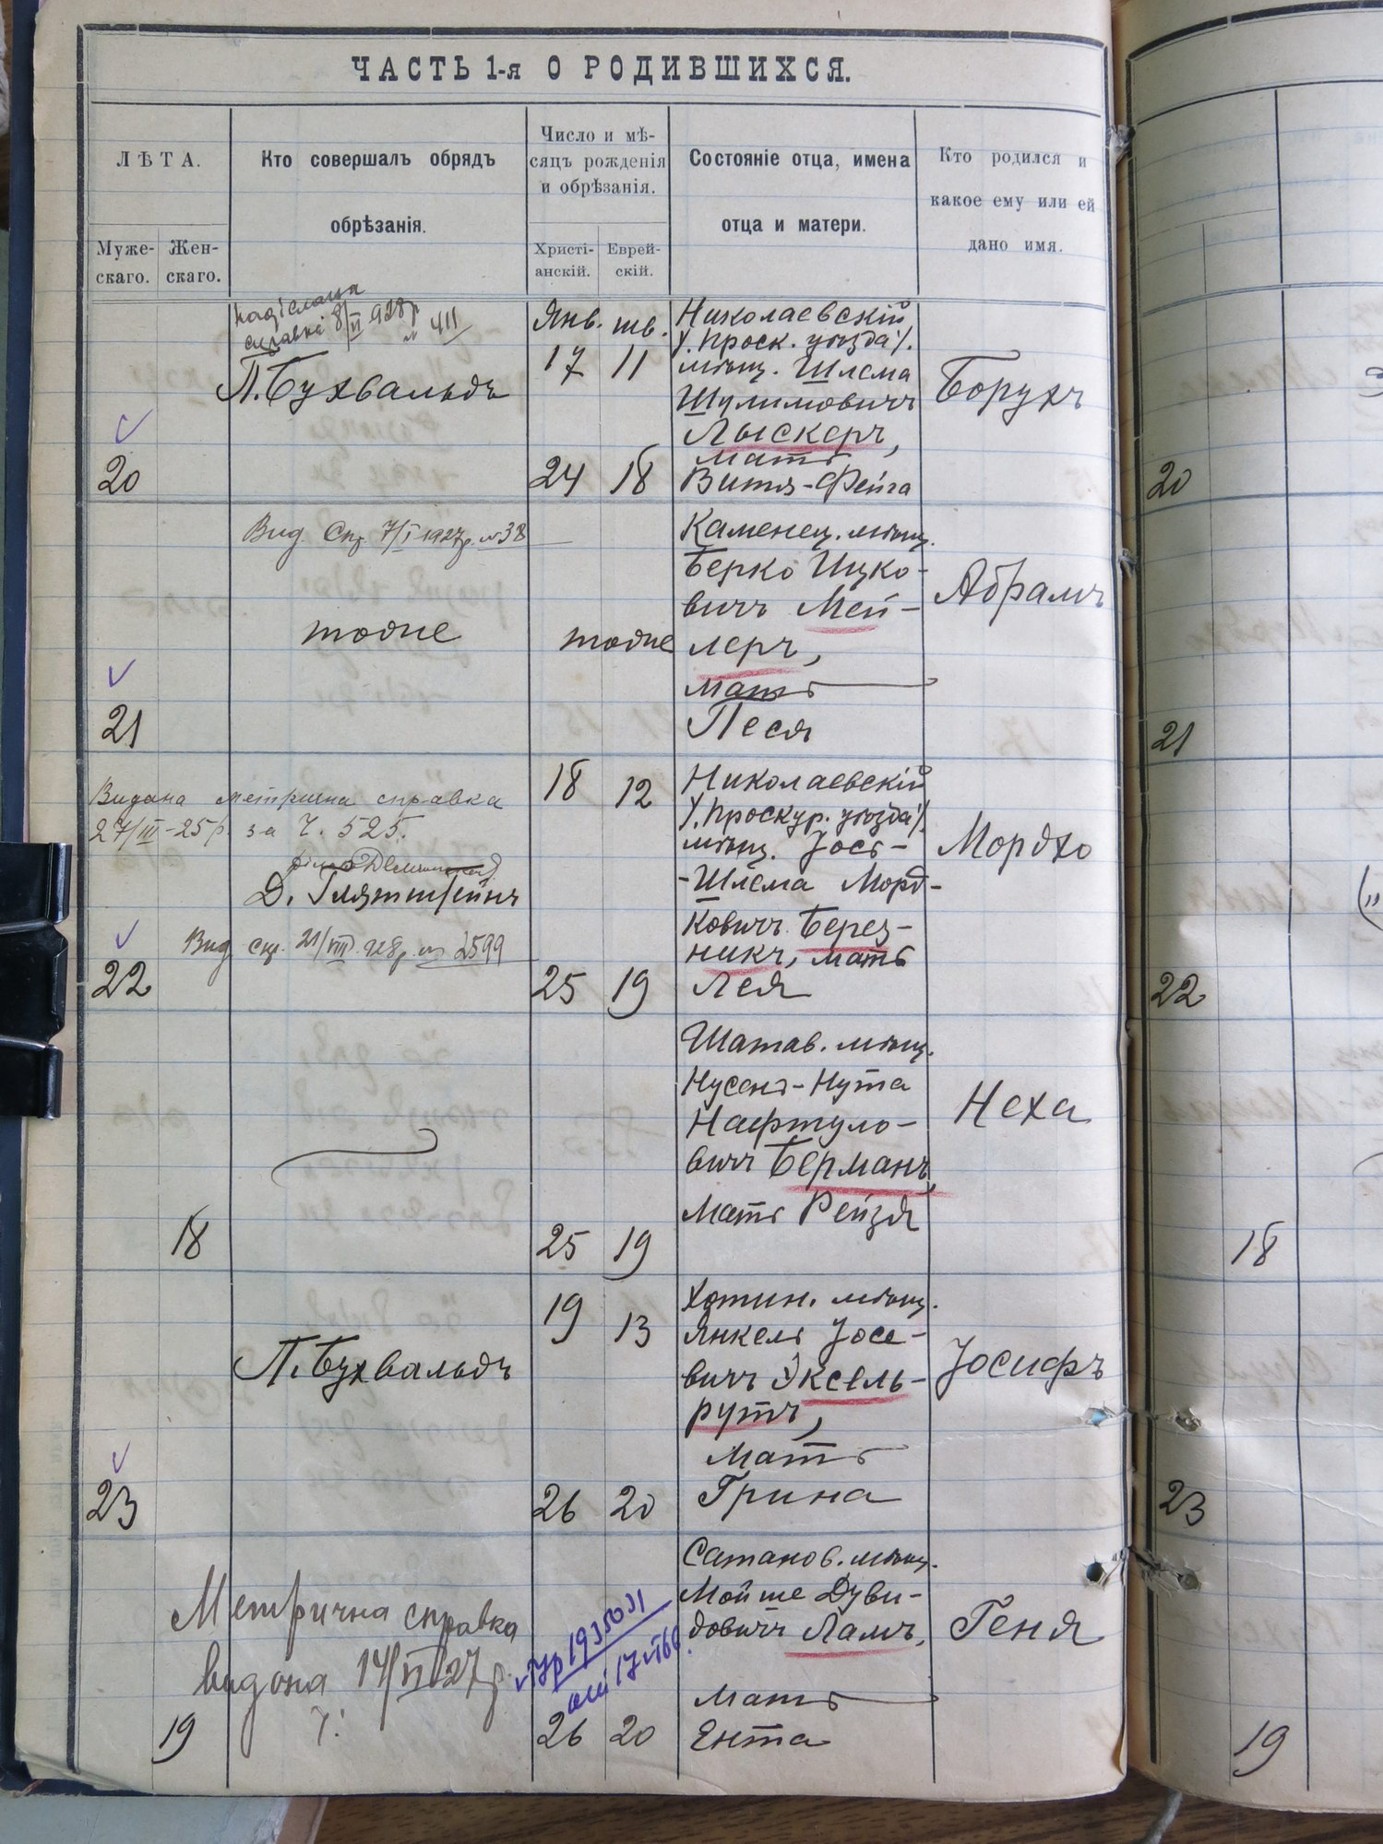 ЧАСТЬ 1-я О РОДИВШИХСЯ.
ЛѢТА.
Муже-
скаго.
Жен-
скаго.
Кто совершалъ обрядъ
обрѣзанія.
Число и мѣ-
сяцъ рожденія
и обрѣзанія.
Христі-
анскій.
Еврей-
скій.
Состояніе отца, имена
отца и матери.
Кто родился и
какое ему или ей
дано имя.
надіслана
справка 8/VI 928 р
№ 411
П. Бухвальдъ
20
Янв. шв.
17 11
24 18
Николаевскій
/. Проск. уѣзда /.
мѣщ. Шлема
Шулимовичъ
Лыскеръ,
мать
Витя-Фейга
Борухъ
20
Вид. Спр. 7/I 1927р. № 38
тоже
21
тоже
Каменец. мѣщ.
Берко Ицко-
вичъ Мей-
леръ,
мать
Песя
Абрамъ
21
Видана метрична справка
27/III-25р. за Ч. 525.
Д. Гляттштейнъ
Вид. спр. 21/VIII 928р. № 2599
22
18 12
25 19
Николаевскій
/. Проскур. уѣзда /.
мѣщ. Іось-
-Шлема Морд-
ковичъ Берез-
никъ, мать
Лея
Мордхо
22
18
25 19
Шатав. мѣщ.
Нусенъ-Нута
Нафтуло-
вичъ Берманъ,
Мать Рейзя
Неха
18
П. Бухвальдъ
23
19 13
26 20
Хотин. мѣщ.
Янкель Іосе-
вичъ Эксель-
рутъ,
Мать
Грина
Іосифъ
23
Метрична справка
видана 14/VI 27 р.
Ч.
19
26 20
Сатанов. мѣщ.
Мойше Дуви-
довичъ Ламъ,
мать
Ента
Геня
19